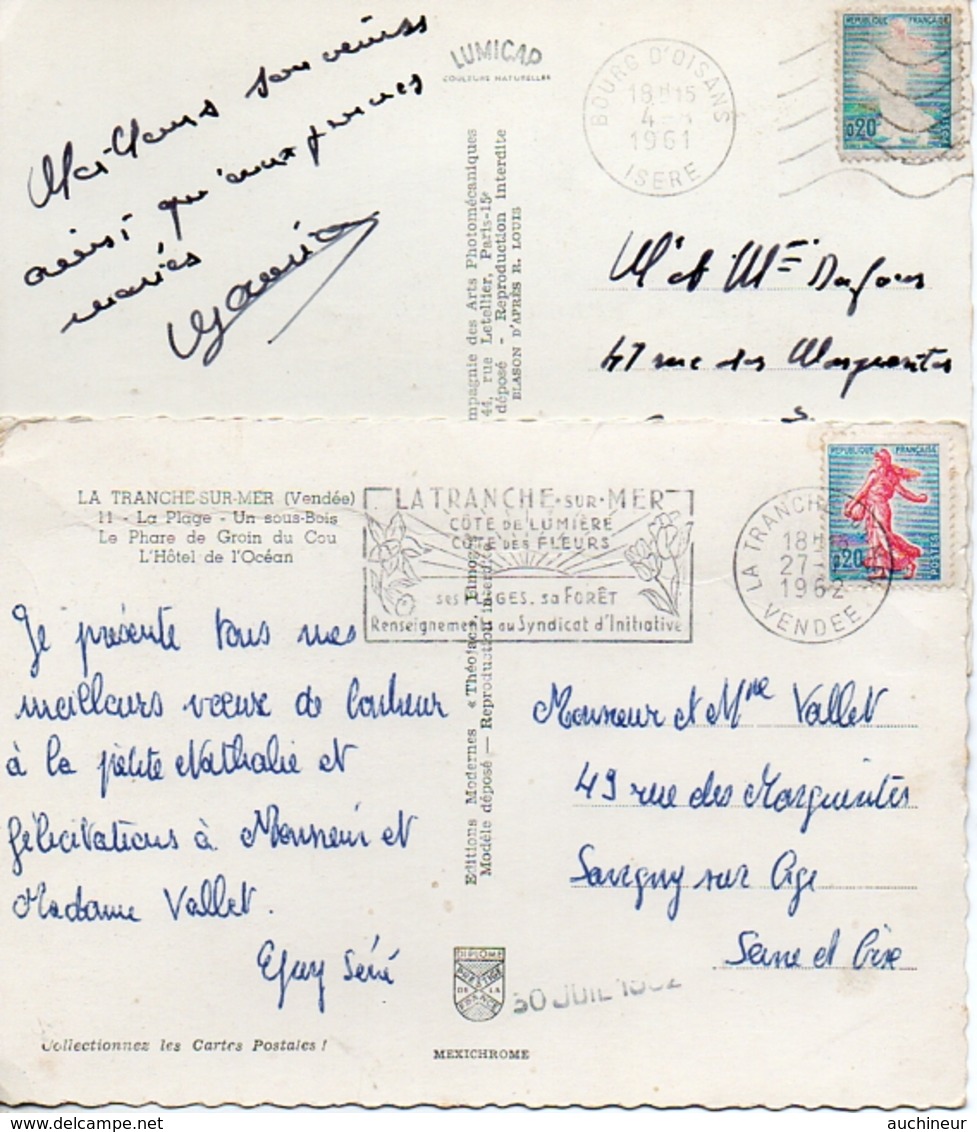 Meilleurs souvenirs
ainsi qu'aux jeunes
mariés
LUMICAP
COULEURS NATURELLES
mpagnie des Arts Photomécaniques
44, rue Letellier, Paris-15e
déposé - Reproduction interdite
BLASON D'APRÈS R. LOUIS
BOURG D'OISANS
18H15
4 -
1961
ISERE
REPUBLIQUE FRANÇAISE
0,20
POSTES
Mr et Mme Dufour
47 rue des Marguerites
LA TRANCHE-SUR-MER (Vendée)
11 - La Plage - Un sous-Bois
Le Phare de Groin du Cou
L'Hôtel de l'Océan
LA TRANCHE-SUR-MER
CÔTE DE LUMIÈRE
CÔTE DES FLEURS
ses PLAGES. sa FORÊT
Renseignements au Syndicat d'Initiative
LA TRANCHE
18H
27-
1962
VENDEE
REPUBLIQUE FRANÇAISE
0,20
POSTES
Je présente tous mes
meilleurs vœux de bonheur
à la petite Nathalie et
félicitations à Monsieur et
Madame Vallet.
Guy Séné
Editions Modernes « Théojac », Limoges
Modèle déposé — Reproduction interdite
Monsieur et Mme Vallet
49 rue des Marguerites
Savigny sur Orge
Seine et Oise
DIPLOME
PRESTIGE
DE LA
FRANCE
30 JUIL 1962
Collectionnez les Cartes Postales !
MEXICHROME
auchineur